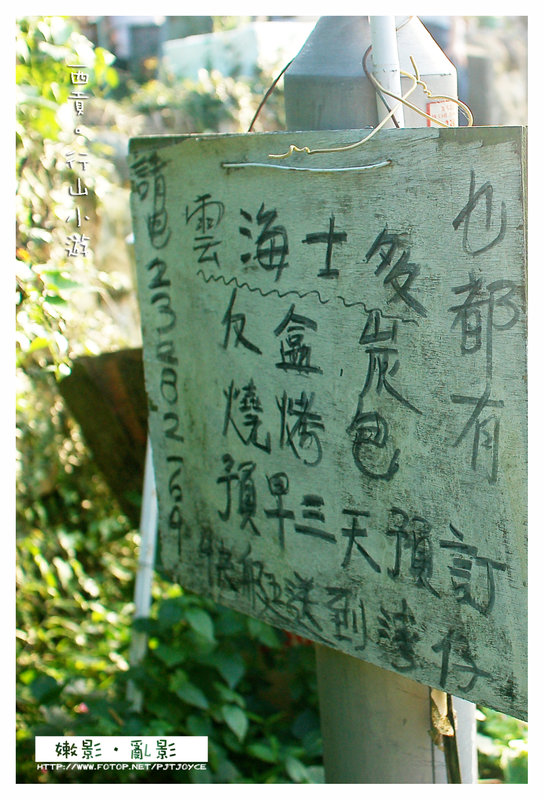 西貢。行山小遊
乜都有
雲海士多
反盒炭
燒烤包
預早三天預訂
快艇送到灣仔
請電
嫩影·亂影
HTTP://WWW.FOTOP.NET/PJTJOYCE